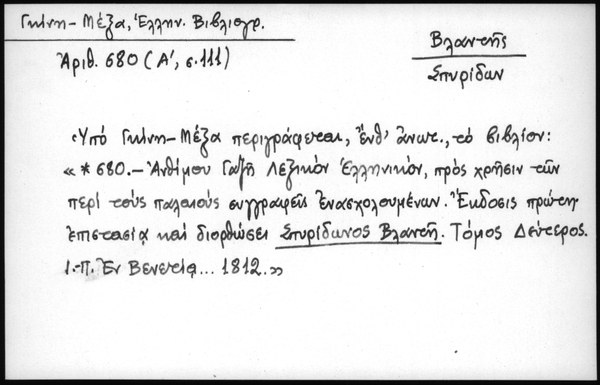 Γκίνη-Μέξα, Ἑλλην. Βιβλιογρ.
Ἀριθ. 680 (Α', σ. 111)
Βλαντῆς
Σπυρίδων
Ὑπό Γκίνη-Μέξα περιγράφεται, ἔνθ' ἀνωτ., τό βιβλίον:
« * 680.- Ἀνθίμου Γαζῆ Λεξικόν Ἑλληνικόν, πρός χρῆσιν τῶν
περί τούς παλαιούς συγγραφεῖς ἐνασχολουμένων. Ἔκδοσις πρώτη
ἐπιστασίᾳ καί διορθώσει Σπυρίδωνος Βλαντῆ. Τόμος Δεύτερος.
Ι.-Π. Ἐν Βενετίᾳ... 1812.»